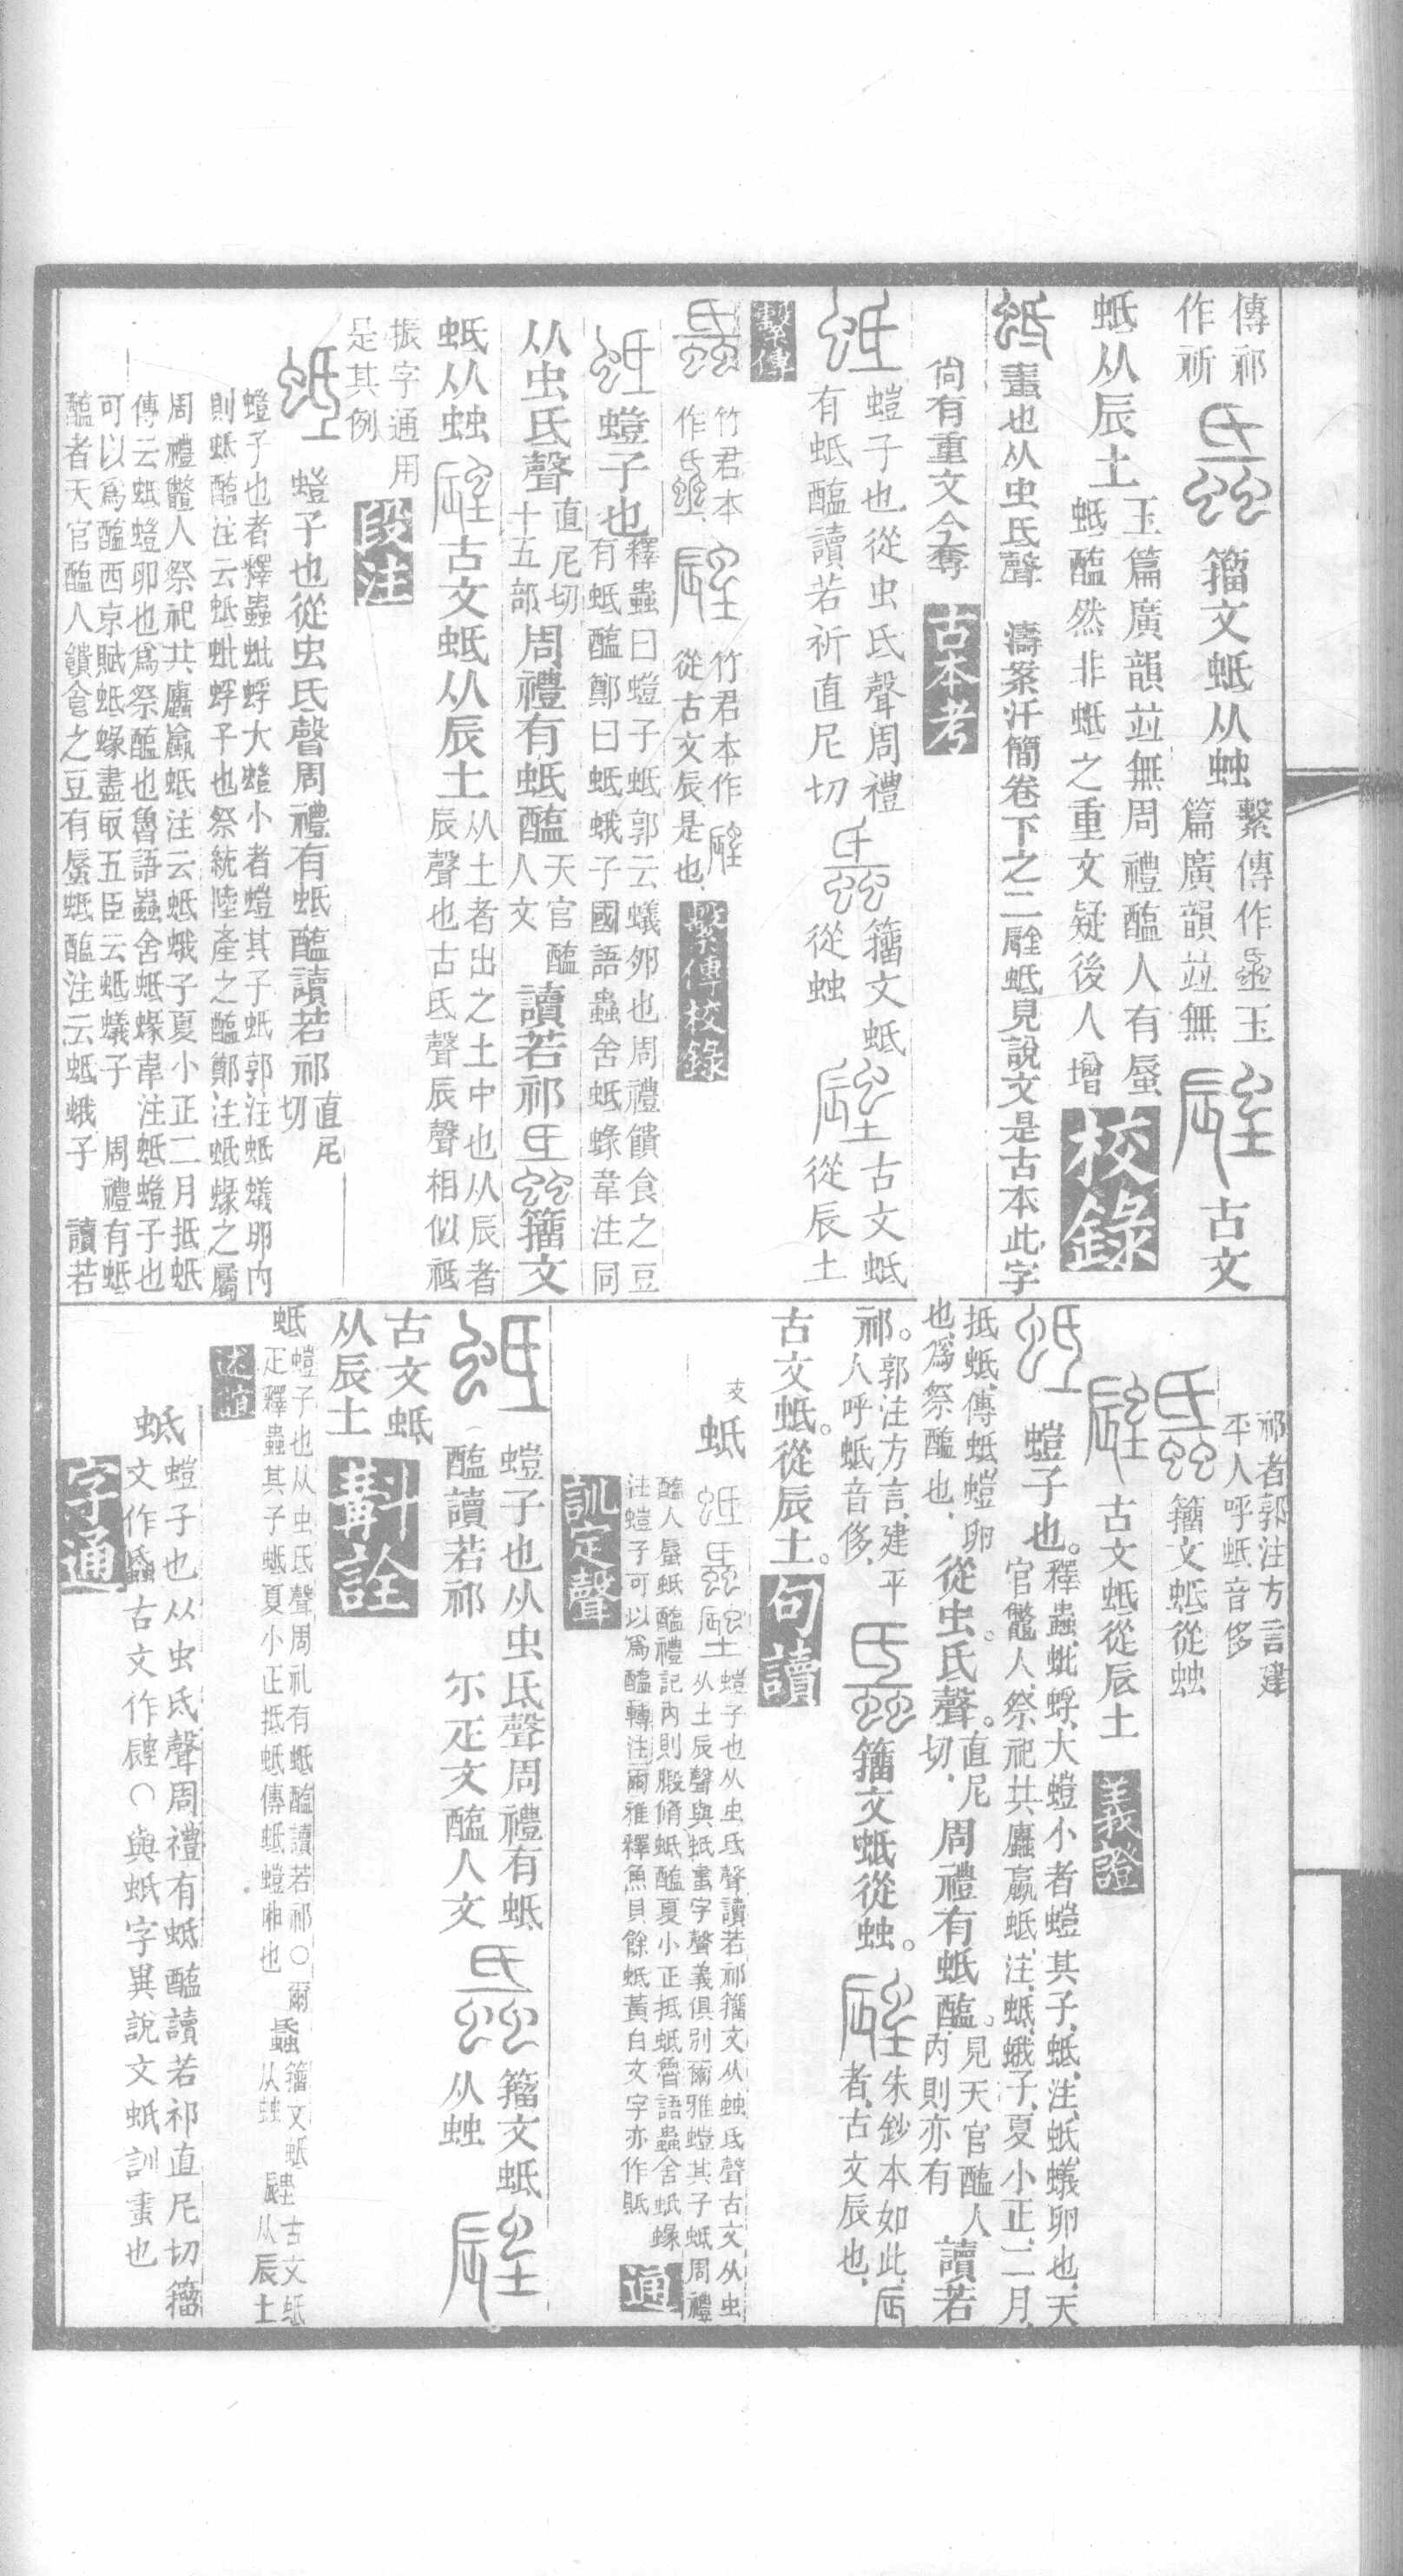 傳祁
作祈
籀文蚳从䖵
繫傳作𧖑玉
篇廣韻竝無
古文
蚳从辰土
玉篇廣韻竝無周禮醢人有蜃
蚳醢然非蚳之重文疑後人增
校錄
畫也从虫氏聲 濤案汗簡卷下之二蚳見說文是古本此字
尙有重文今奪
古本考
螘子也從虫氏聲周禮
有蚳醢讀若祈直尼切
籀文蚳
從䖵
古文蚳
從辰土
繫傳
竹君本
作
竹君本作
從古文辰是也
繫傳校錄
螘子也
釋蟲曰螘子蚳郭云蟻卵也周禮饋食之豆
有蚳醢鄭曰蚳蛾子國語蟲舍蚳蝝韋注同
从虫氏聲
直尼切
十五部
周禮有蚳醢
天官醢
人文
讀若祁
籀文
蚳从䖵
古文蚳从辰土
从土者出之土中也从辰者
辰聲也古氏聲辰聲相似祗
振字通用
是其例
段注
螘子也從虫氏聲周禮有蚳醢讀若祁
直尼
切
螘子也者釋蟲蚍蜉大螘小者螘其子蚳郭注蚳蟻卵內
則蚳醢注云蚳蚍蜉子也祭統陸產之醢鄭注蚳蝝之屬
周禮鼈人祭祀共蠯蠃蚳注云蚳蛾子夏小正二月抵蚳
傳云蚳螘卵也爲祭醢也魯語蟲舍蚳蝝韋注蚳螘子也
可以爲醢西京賦蚳蝝盡取五臣云蚳蟻子 周禮有蚳
醢者天官醢人饋食之豆有蜃蚳醢注云蚳蛾子 讀若
祁者郭注方言建
平人呼蚳音侈
籀文蚳從䖵
古文蚳從辰土
義證
螘子也。
釋蟲、蚍蜉、大螘小者螘其子、蚳、注、蚳蟻卵也、天
官鼈人、祭祀共蠯蠃蚳、注、蚳、蛾子、夏小正、二月、
抵蚳、傳蚳螘卵
也、爲祭醢也、
從虫氏聲。
直尼
切、
周禮有蚳醢。
見天官醢人、
內則亦有
讀若
祁。
郭注方言、建平
人呼蚳音侈、
籀文蚳從䖵。
朱鈔本如此、
者、古文辰也、
古文蚳。從辰土。
句讀
支
蚳
螘子也从虫氐聲讀若祁籀文从䖵氐聲古文从虫
从土辰聲與蚔畫字聲義俱別爾雅螘其子蚳周禮
醢人蜃蚳醢禮記內則腶脩蚳醢夏小正抵蚳魯語蟲舍蚳蝝
注螘子可以爲醢轉注爾雅釋魚貝餘蚳黃白文字亦作貾
通
訓定聲
螘子也从虫氐聲周禮有蚳
醢讀若祁 尒疋文醢人文
籀文蚳
从䖵
古文蚳
从辰土
斠詮
蚳
螘子也从虫氐聲周礼有蚳醢讀若祁○爾
疋釋蟲其子蚳夏小正抵蚳傳蚳螘卵也
籀文蚳
从䖵
古文蚳
从辰土
述誼
蚳
螘子也从虫氐聲周禮有蚳醢讀若祁直尼切籀
文作𧖑古文作○與蚔字異說文蚔訓畫也
字通